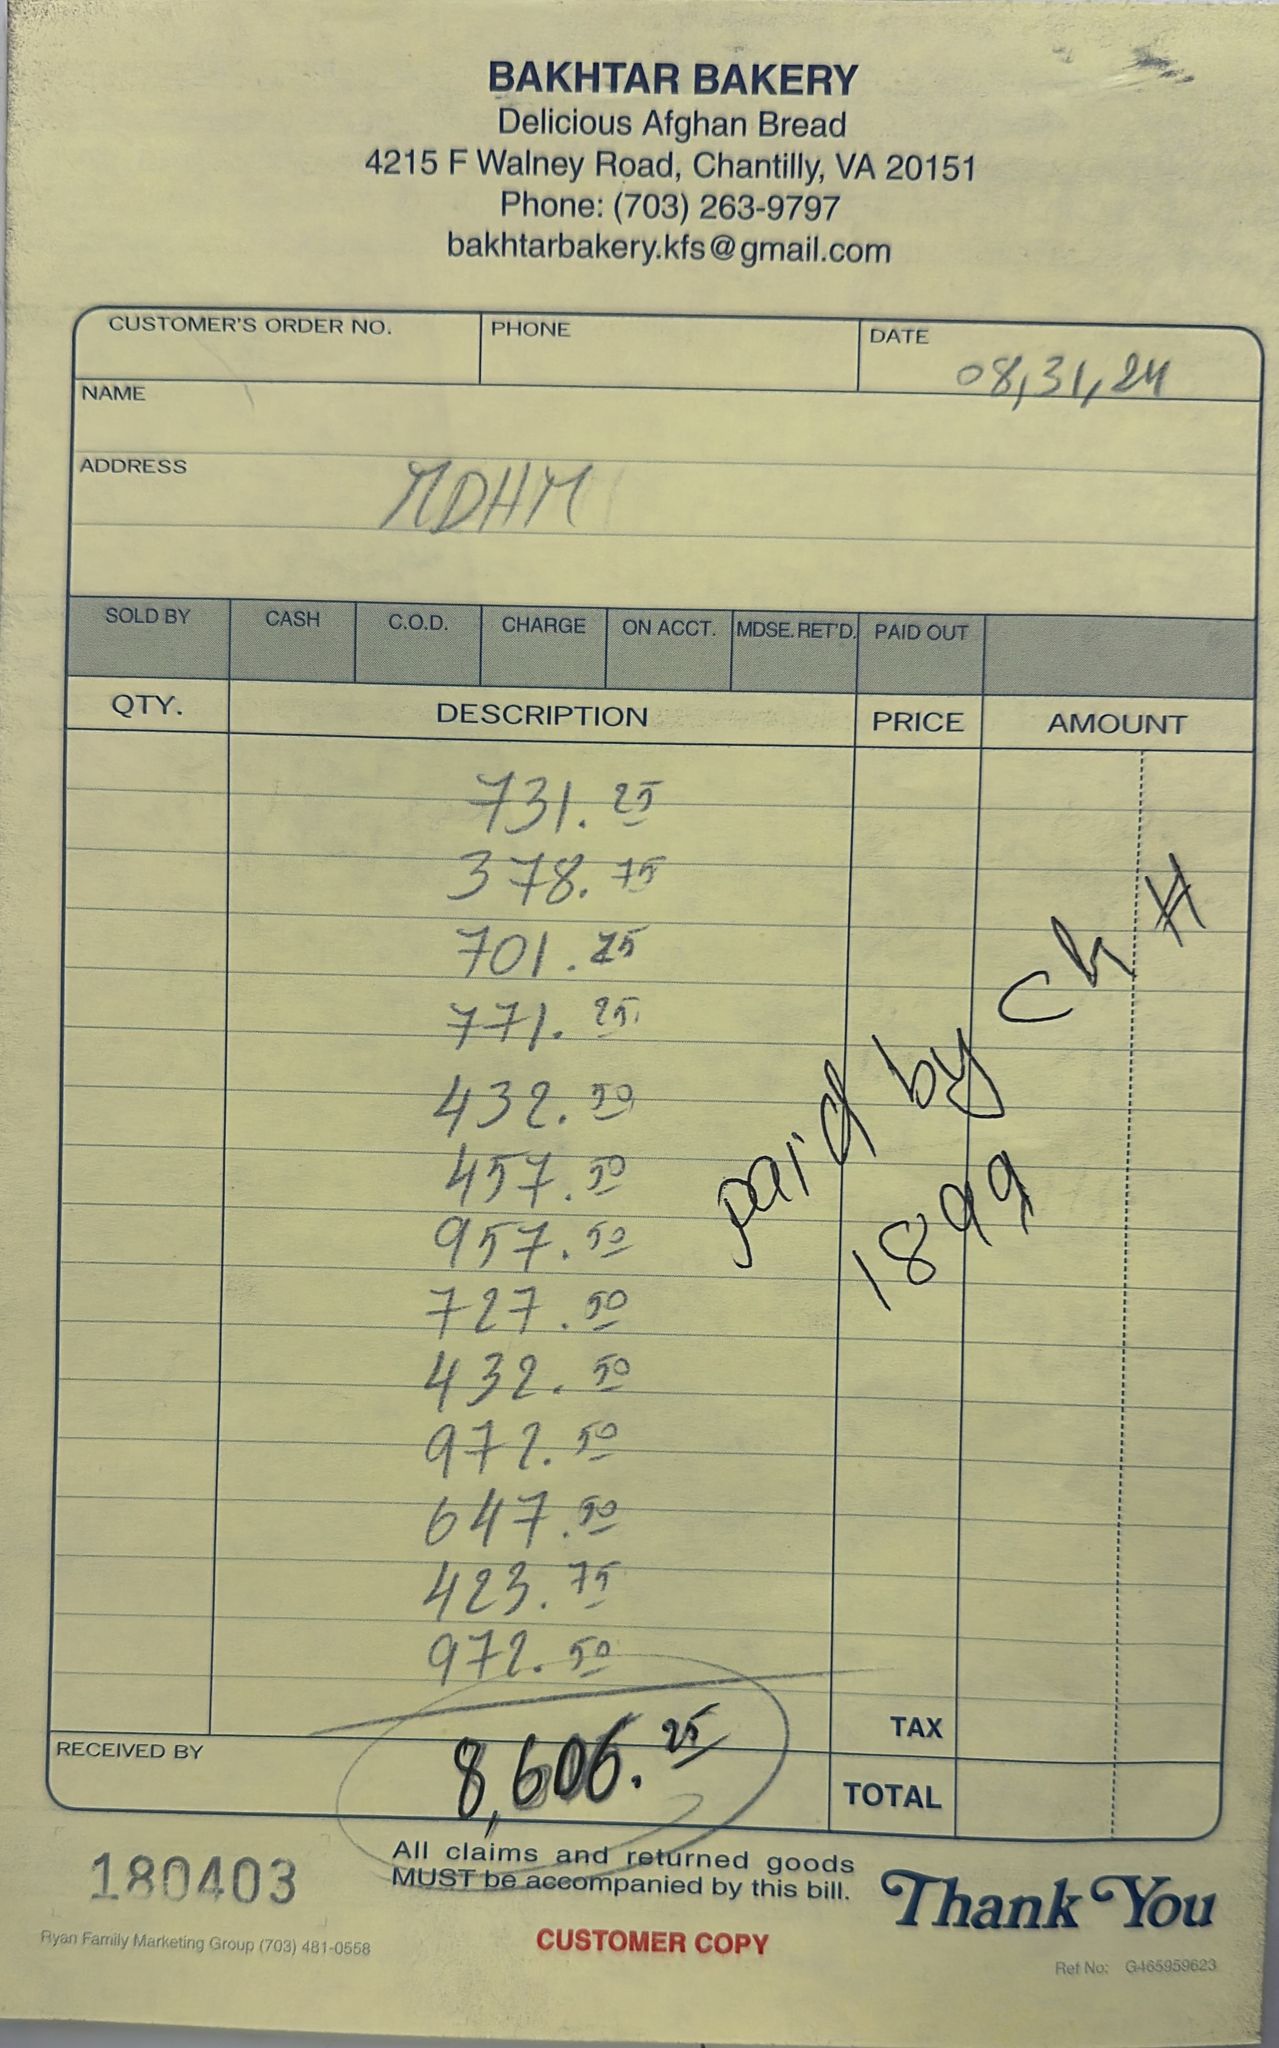 BAKHTAR BAKERY
Delicious Afghan Bread
4215 F Walney Road, Chantilly, VA 20151
Phone: (703) 263-9797
bakhtarbakery.kfs@gmail.com
CUSTOMER'S ORDER NO. PHONE DATE
08,31,24
NAME
ADDRESS
MDHM
SOLD BY CASH C.O.D. CHARGE ON ACCT. MDSE. RET'D. PAID OUT
QTY. DESCRIPTION PRICE AMOUNT
731.25
378.75
701.25
771.25
432.50
457.50
957.50
727.50
432.50
972.50
647.50
423.75
972.50
paid by Ch #
1899
TAX
RECEIVED BY
8,606.25
TOTAL
180403
All claims and returned goods
MUST be accompanied by this bill.
Thank You
Ryan Family Marketing Group (703) 481-0558
CUSTOMER COPY
Ref No: G465959623